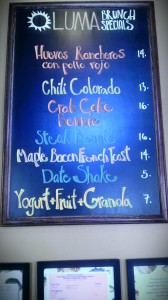 LUMA BRUNCH SPECIALS
Huevos Rancheros 14.
con pollo rojo
Chili Colorado 13.
Crab Cake 16.
Bennie
Steak 16.
Maple Bacon French Toast 14.
Date Shake 5.
Yogurt + Fruit + Granola 7.